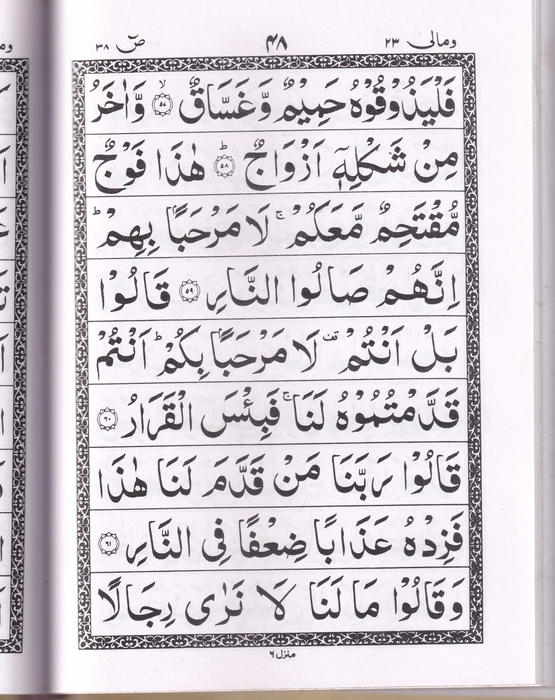 ومالی ۲۳ ۴۸ صٓ ۳۸
فَلْيَذُوْقُوْهُ حَمِيْمٌ وَّغَسَّاقٌ ۙ﴿۵۷﴾ وَّاٰخَرُ
مِنْ شَكْلِهٖۤ اَزْوَاجٌ ؕ﴿۵۸﴾ هٰذَا فَوْجٌ
مُّقْتَحِمٌ مَّعَكُمْ ۚ لَا مَرْحَبًۢا بِهِمْ ؕ
اِنَّهُمْ صَالُوا النَّارِ ﴿۵۹﴾ قَالُوْا
بَلْ اَنْتُمْ ۫ لَا مَرْحَبًۢا بِكُمْ ؕ اَنْتُمْ
قَدَّمْتُمُوْهُ لَنَا ۚ فَبِئْسَ الْقَرَارُ ﴿۶۰﴾
قَالُوْا رَبَّنَا مَنْ قَدَّمَ لَنَا هٰذَا
فَزِدْهُ عَذَابًا ضِعْفًا فِى النَّارِ ﴿۶۱﴾
وَقَالُوْا مَا لَنَا لَا نَرٰى رِجَالًا
منزل ۶